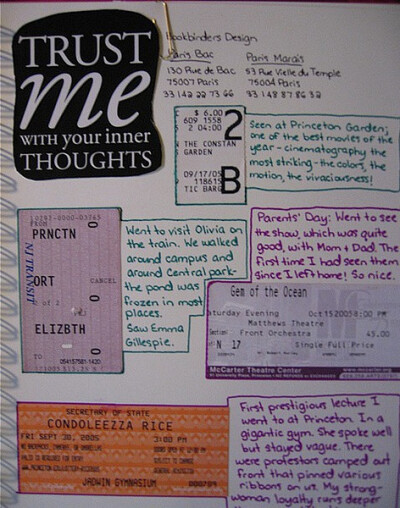 TRUST
me
WITH your inner
THOUGHTS
Bookbinders Design
Paris Bac
130 Rue de Bac
75007 Paris
33 142 22 73 66
Paris Marais
53 Rue Vielle du Temple
75004 Paris
33 148 87 86 32
$ 6.00
609 1558
2 04:00
THE CONSTAN
GARDEN
09/17/05
118615
TIC BARG
2
B
Seen at Princeton Garden;
one of the best movies of the
year - cinematography the
most striking - the colors, the
motion, the vivaciousness!
FROM
PRNCTN
NJ TRANSIT
ORT
CANCEL
of 2
ELIZBTH
TO
Went to visit Olivia on
the train. We walked
around campus and
around Central park-
the pond was
frozen in most
places.
Saw Emma
Gillespie.
Parents' Day: Went to see
the show, which was quite
good, with Mom + Dad! The
first time I had seen them
since I left home! So nice.
Gem of the Ocean
aturday Evening Oct 15 2005 8:00 PM
Matthews Theatre
Front Orchestra 45.00
N 17 Single Full Price
McCarter Theatre Center
www.mccarter.org
SECRETARY OF STATE
CONDOLEEZZA RICE
FRI SEPT 30, 2005 3:00 PM
JADWIN GYMNASIUM
First prestigious lecture I
went to at Princeton. In a
gigantic gym. She spoke well
but stayed vague. There
were protestors camped out
front that pinned various
ribbons on us. My strong-
woman loyalty runs deeper